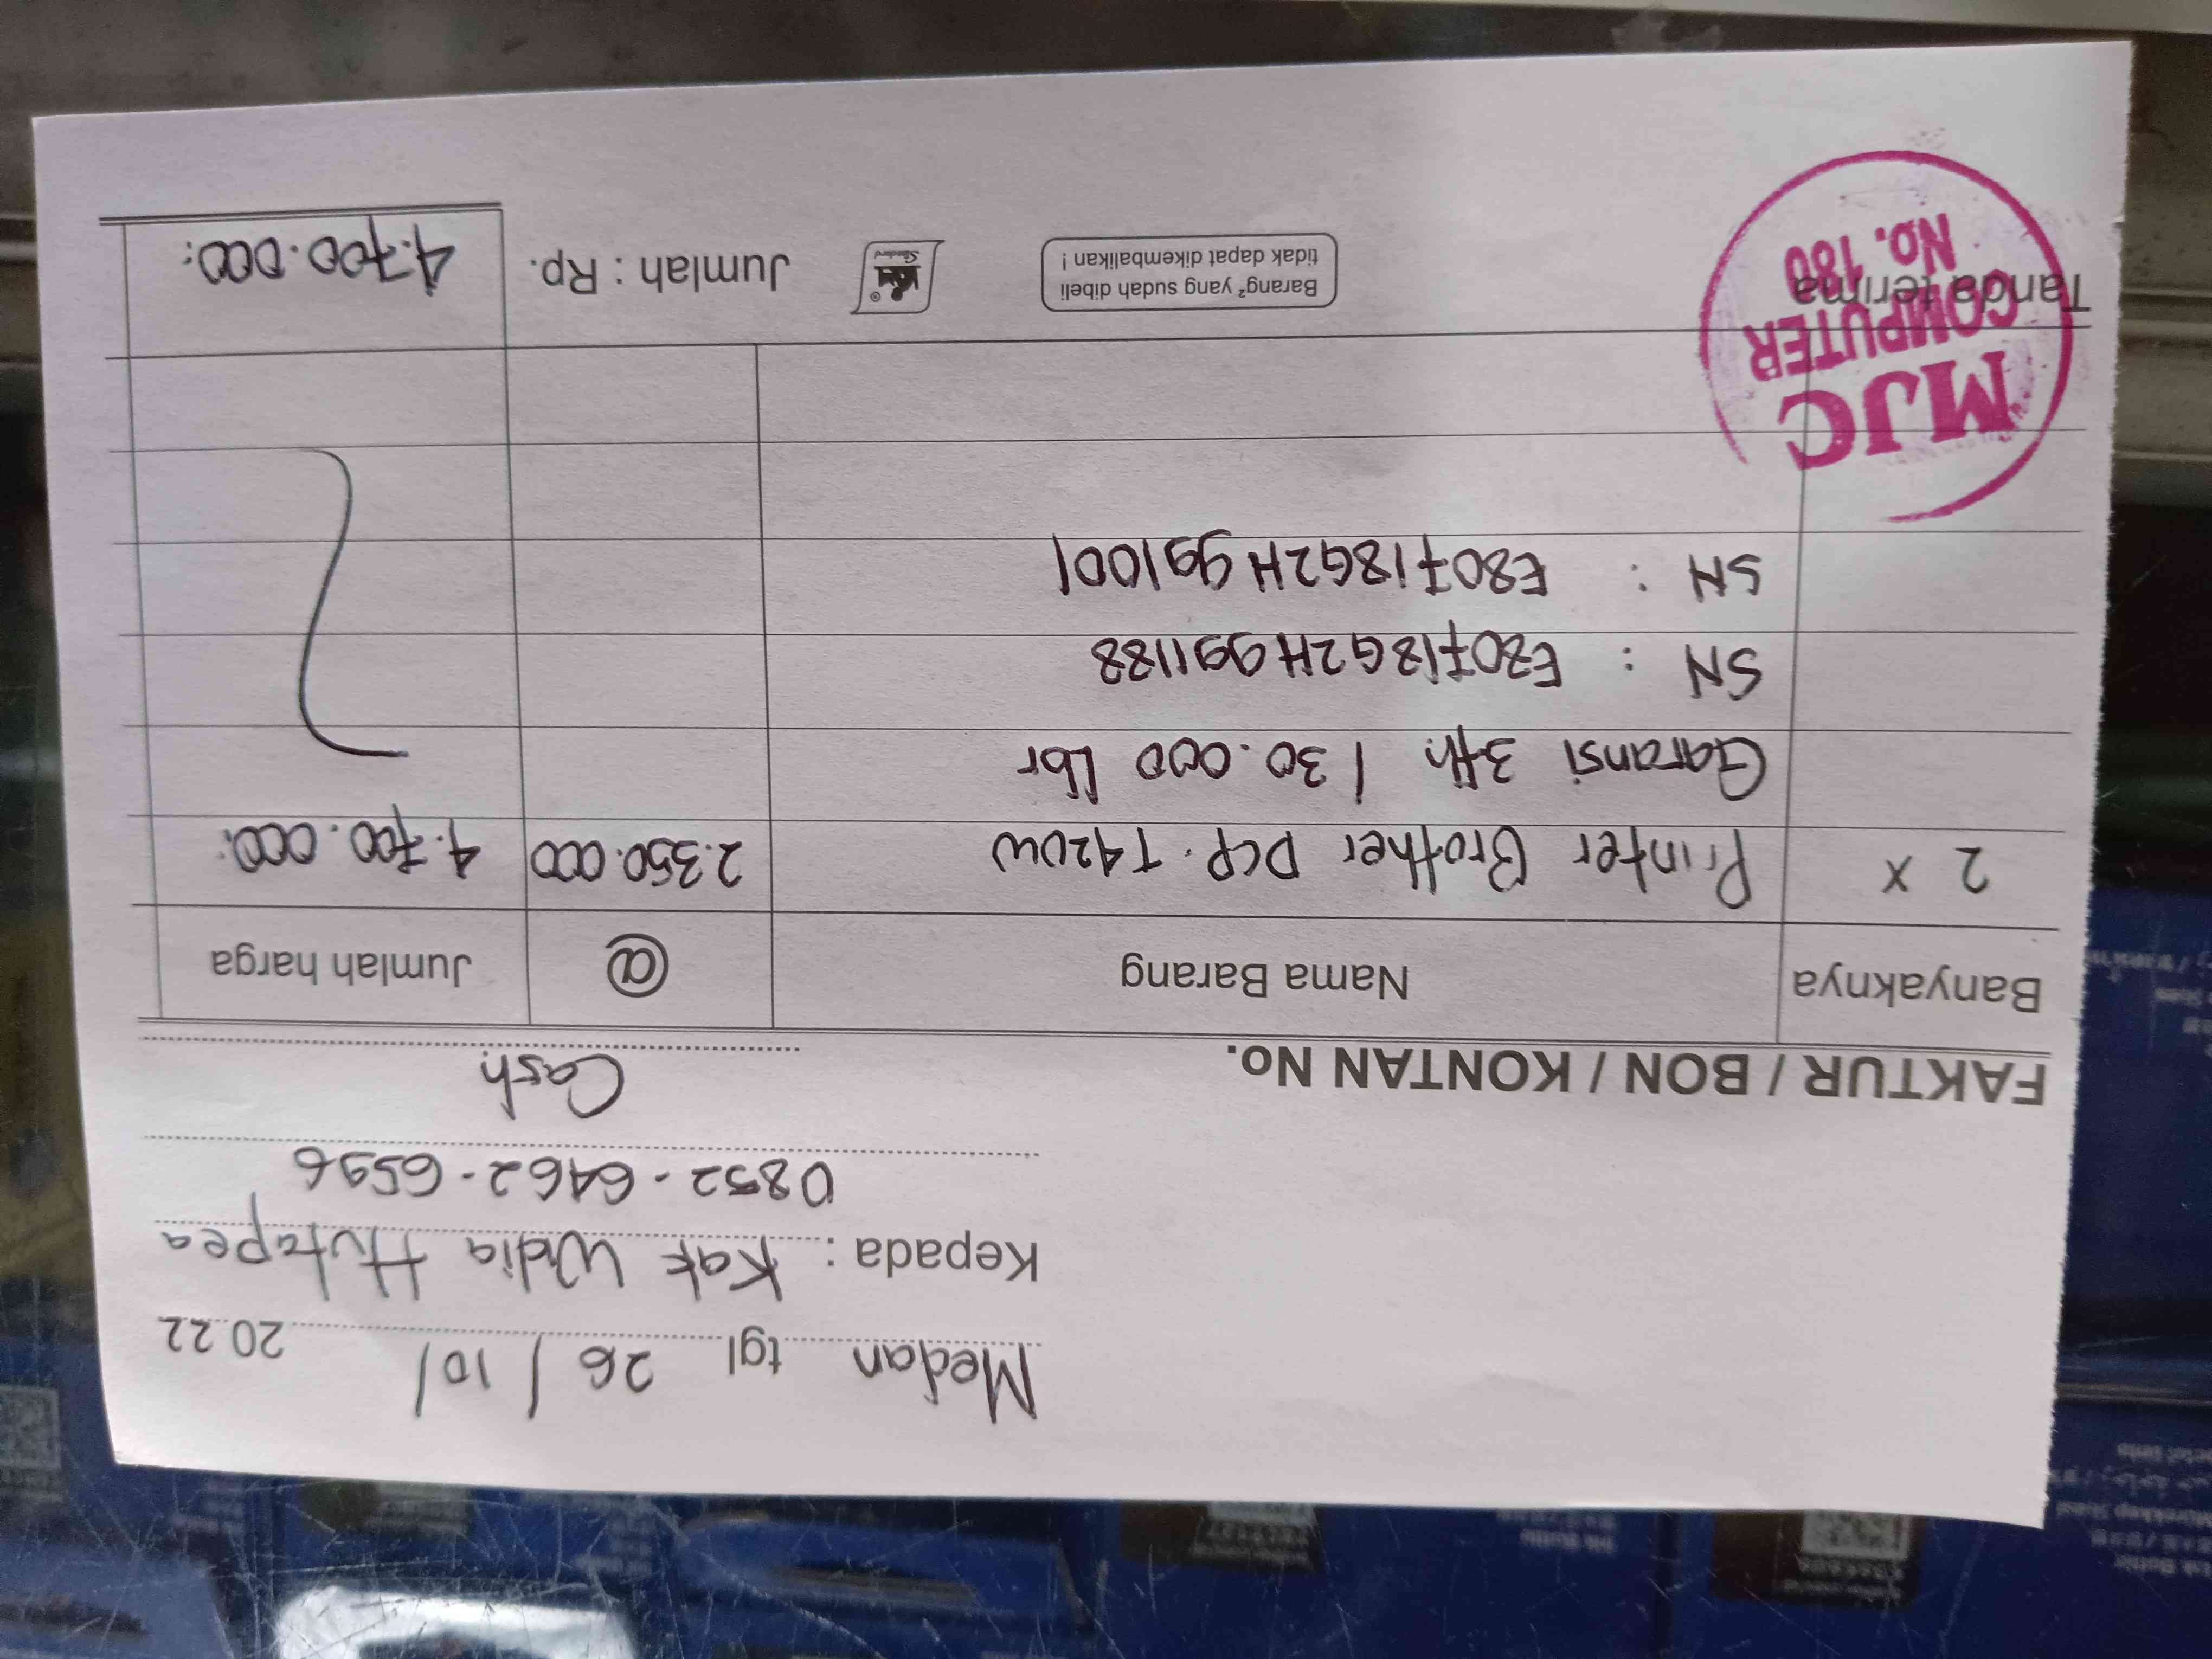 Medan tgl 26 / 10 / 2022
Kepada : Kak Widia Hutapea
0852-6462-6596
Cash.
FAKTUR / BON / KONTAN No.
Banyaknya Nama Barang @ Jumlah harga
2 x Printer Brother DCP. T420W 2.350.000 4.700.000.
Garansi 3th / 30.000 Lbr
SN : E80718G2H991188
SN : E80718G2H991001
MJC
COMPUTER
NO. 180
Tanda terima
Barang² yang sudah dibeli
tidak dapat dikembalikan !
Jumlah : Rp. 4.700.000: